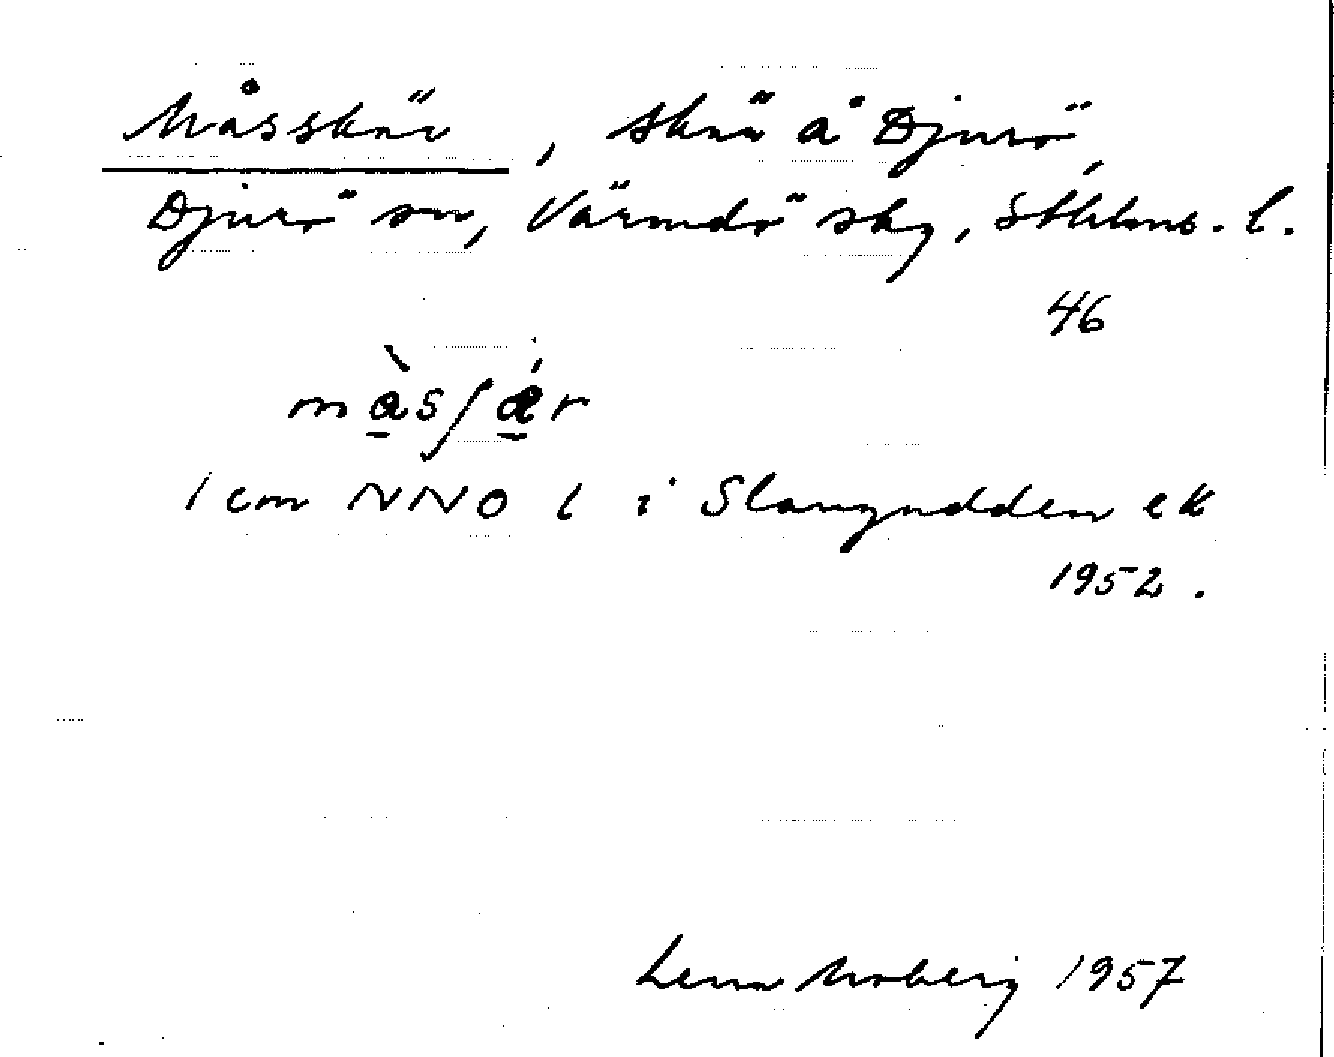 Måsskär, skär å Djurö,
Djurö sn, Värmdö skg, Sthlms. l.
46
mås∫ǽr
1 cm NNO l i Slangudden ek
1952.
Lena Moberg 1957